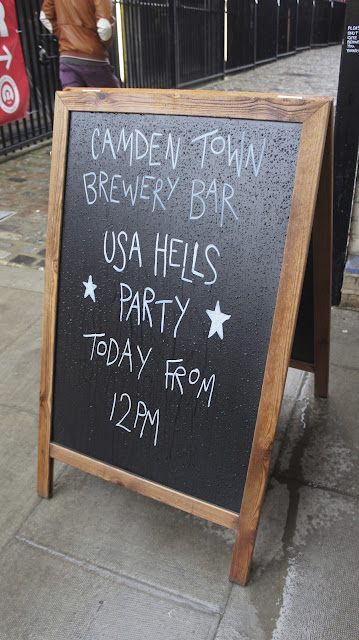 CAMDEN TOWN
BREWERY BAR
USA HELLS
PARTY
TODAY FROM
12PM